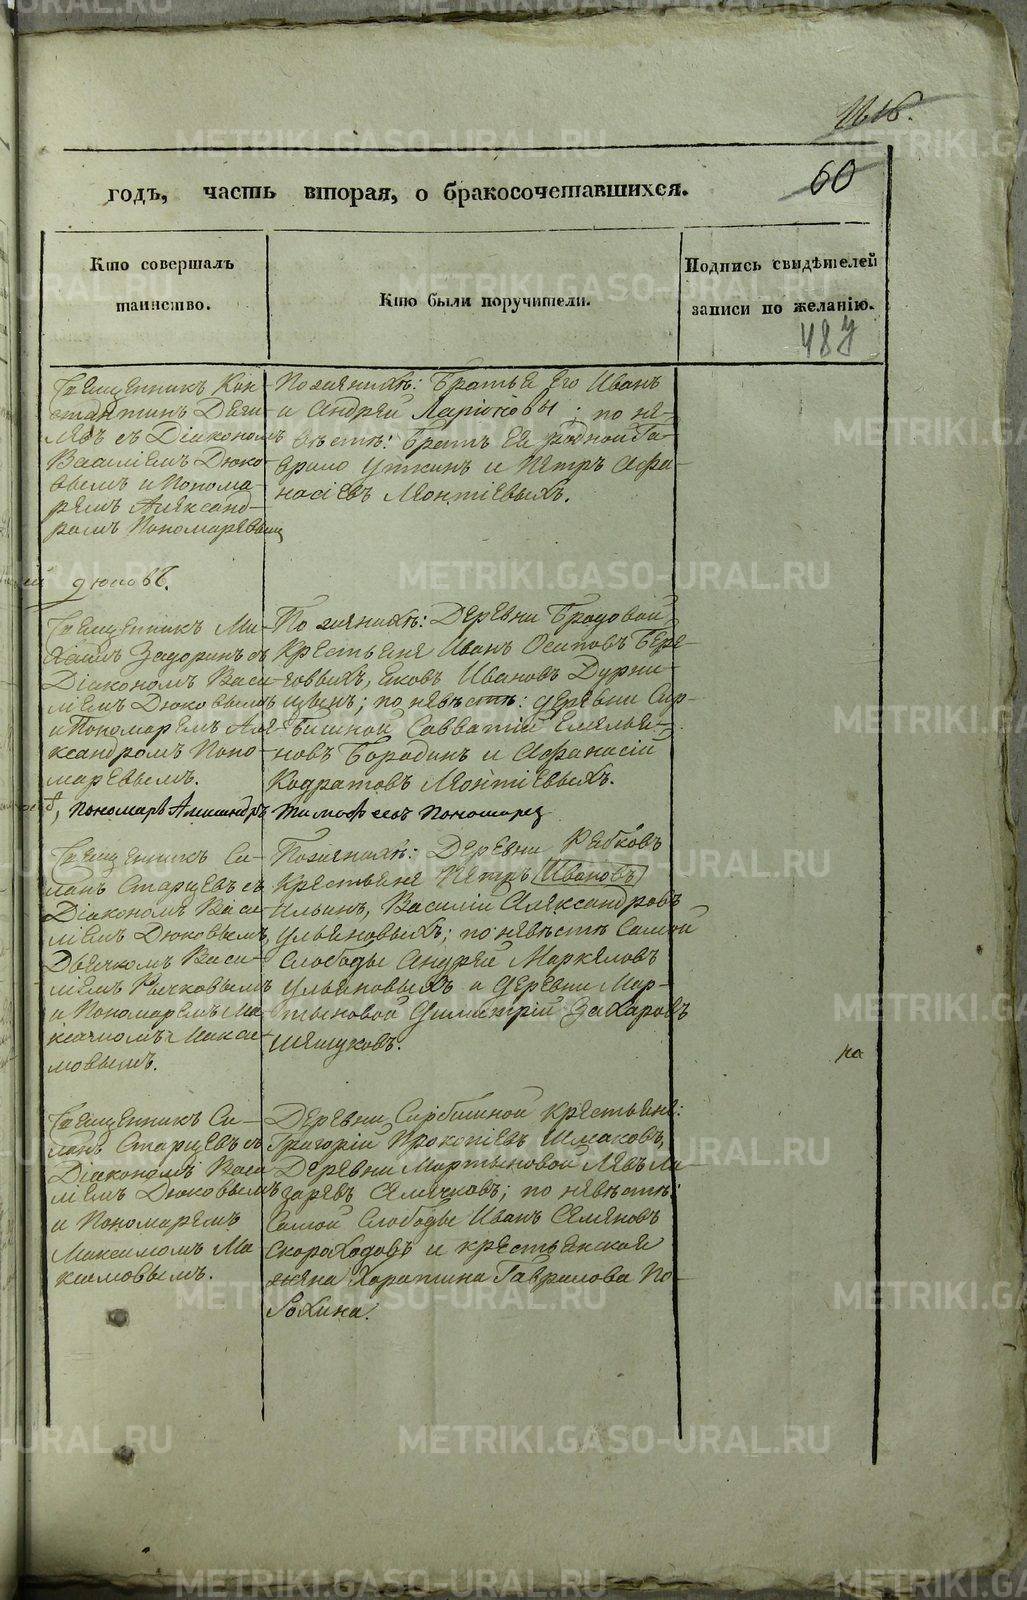 60
годъ, часть вторая, о бракосочетавшихся.
Кто совершалъ
таинство.
Кто были поручители.
Подпись свидѣтелей
записи по желанію.
Священникъ Кон-
стантинъ Деги-
левъ съ Діакономъ
Василіемъ Дюко-
вымъ и Понома-
ремъ Александ-
ромъ Пономаревымъ
По женихѣ: Братья его Иванъ
и Андрей Ларіоновы; по не-
вѣстѣ: Братъ ея родной Га-
врило Уткинъ и Петръ Афа-
насіевъ Леонтіевыхъ.
Дюковъ.
Священникъ Ми-
хаилъ Задоринъ съ
Діакономъ Васи-
ліемъ Дюковымъ
и Пономаремъ Але-
ксандромъ Поно-
маревымъ.
По женихѣ: Деревни Бродовой
Крестьяне Иванъ Осиповъ Бере-
говыхъ, Яковъ Ивановъ Дурни-
цынъ; по невѣстѣ: деревни Сар-
бишной Савватій Емельян-
новъ Бородинъ и Афанасій
Кодратовъ Леонтіевыхъ.
Пономарь Александръ Тимофеевъ Пономарев
Священникъ Си-
ланъ Старцевъ съ
Діакономъ Васи-
ліемъ Дюковымъ,
Дьячкомъ Васи-
ліемъ Рычковымъ
и Пономаремъ Ма-
ксимомъ Макси-
мовымъ.
По женихѣ: Деревни Рябковъ
Крестьяне Петръ Ивановъ
Ильинъ, Василій Александровъ
Ульяновыхъ; по невѣстѣ Самой
Слободы Андрей Маркеловъ
Ульяновыхъ и деревни Мар-
тыновой Димитрій Захаровъ
Священникъ Си-
ланъ Старцевъ съ
Діакономъ Васи
ліемъ Дюковымъ
и Пономаремъ
Максимомъ Ма
ксимовымъ.
Деревни Сарбишной Крестьяне:
Григорій Прокопіевъ Шмаковъ,
Деревни Мартыновой Левъ Ла-
заревъ Семячковъ; по невѣстѣ:
Самой Слободы Иванъ Семеновъ
Скороходовъ и крестьянской
жена Харатина Гаврилова По-